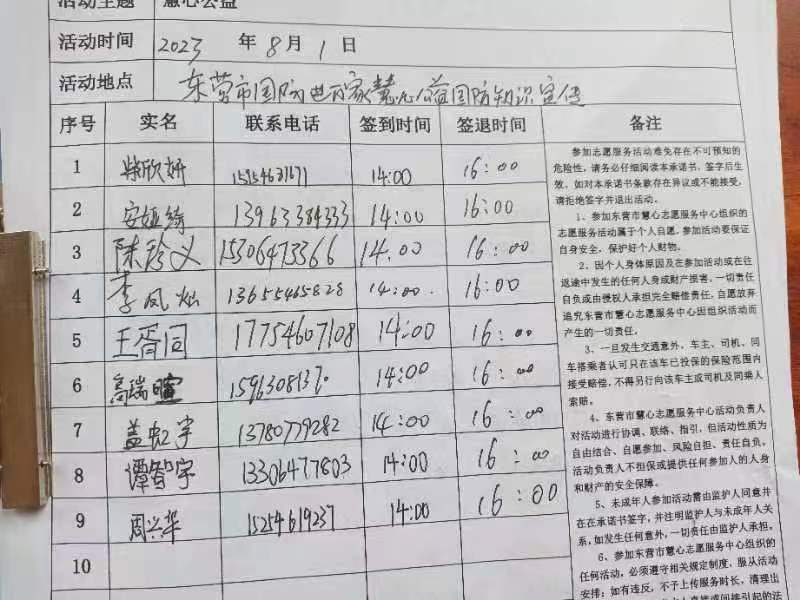 活动主题 慧心公益
活动时间 2023 年 8 月 1 日
活动地点 东营市国防电百家慧心公益国防知识宣传
序号 实名 联系电话 签到时间 签退时间 备注
1 柴欣妍 14:00 16:00
2 安娅绮 13963384333 14:00 16:00
3 陈玲义 15306473366 14:00 16:00
4 李凤灿 13655465828 14:00 16:00
5 王胥同 17754607108 14:00 16:00
6 高瑞暄 14:00 16:00
7 盖虹宇 13780779282 14:00 16:00
8 谭智宇 13306477803 14:00 16:00
9 周兴华 15254619237 14:00 16:00
10
参加志愿服务活动难免存在不可预知的
危险性，请务必仔细阅读本承诺书，签字后生
效。如对本承诺书条款存在异议或不能接受，
请拒绝签字并退出活动。
1、参加东营市慧心志愿服务中心组织的
志愿服务活动属于个人自愿。参加活动要保证
自身安全，保护好个人财物。
2、因个人身体原因及在参加活动或在往
返途中发生的任何人身或财产损害，一切责任
自负或由侵权人承担完全赔偿责任，自愿放弃
追究东营市慧心志愿服务中心因组织活动而
产生的一切责任。
3、一旦发生交通意外、车主、司机、同
车搭乘者认可只在该车已投保的保险范围内
接受赔偿，不得另行向该车主或司机及同乘人
索赔。
4、东营市慧心志愿服务中心活动负责人
对活动进行协调、联络、指引，但活动性质为
自由结合、自愿参加、风险自担、责任自负，
活动负责人不担保或提供任何参加人的人身
和财产的安全保障。
5、未成年人参加活动需由监护人同意并
在在承诺书签字，并注明监护人与未成年人关
系，如发生任何意外，一切责任由监护人承担。
6、参加东营市慧心志愿服务中心组织的
任何活动，必须遵守相关规定制度，服从活动
安排；如有违反，不予上传服务时长，清理出